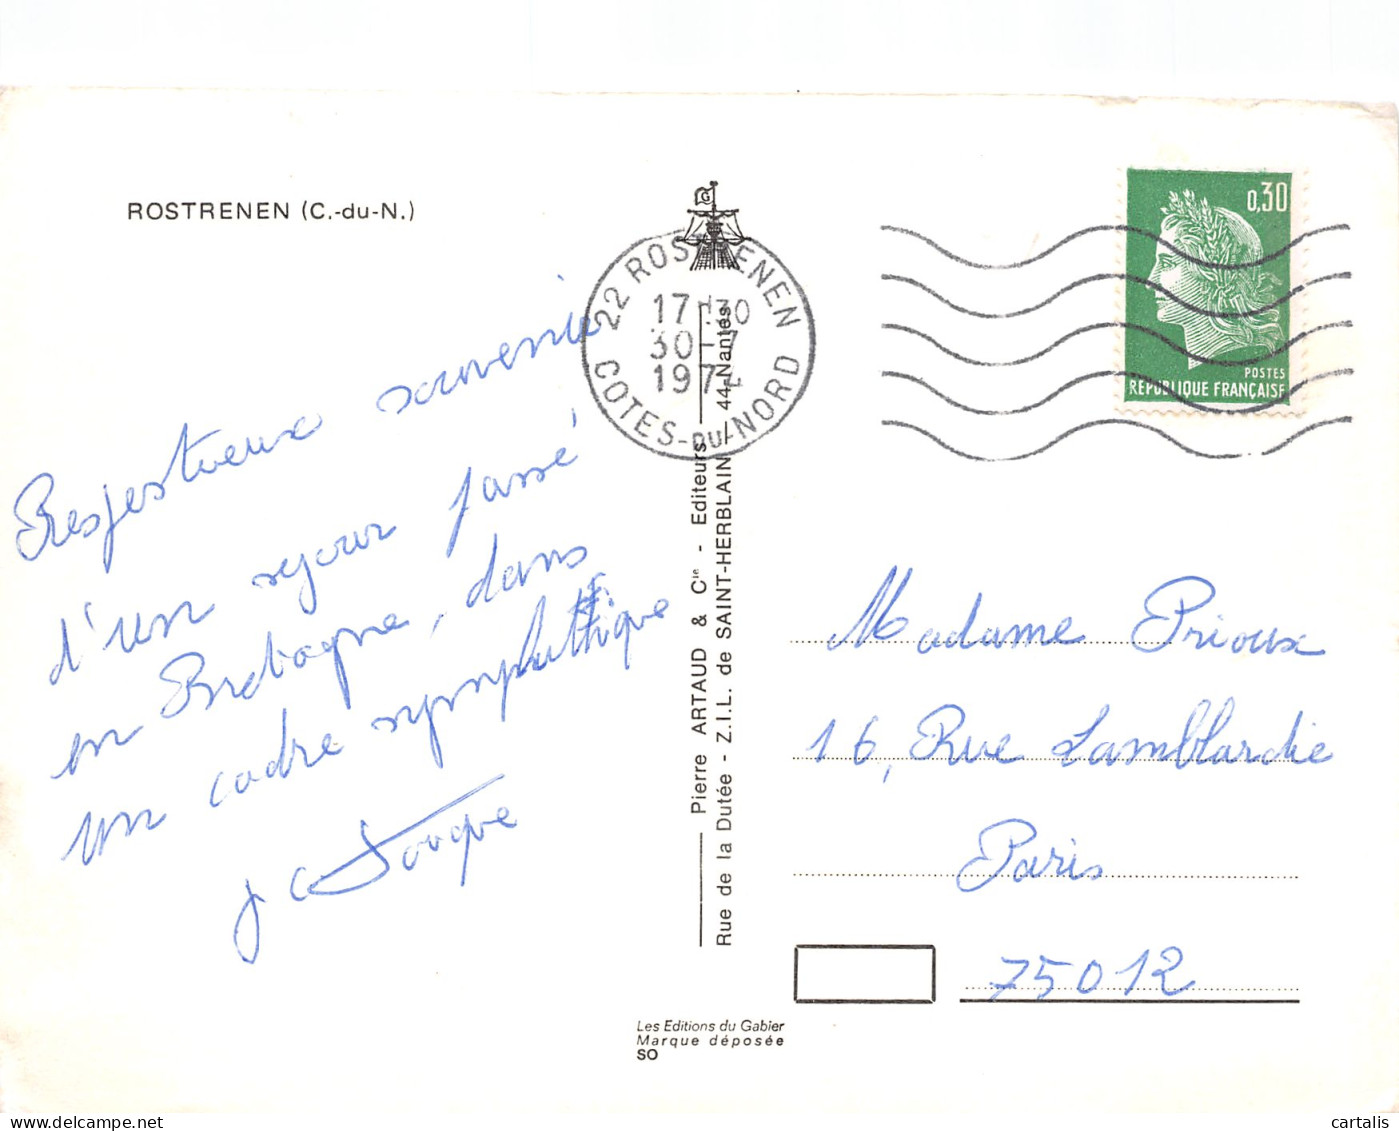 ROSTRENEN (C.-du-N.)
Respectueux souvenir
d'un séjour passé
en Bretagne, dans
un cadre sympathique
J C
22 ROSTRENEN
17 H30
30-7
1974
COTES-DU-NORD
0,30
POSTES
REPUBLIQUE FRANÇAISE
Pierre ARTAUD & Cie - Editeurs
Rue de la Dutée - Z.I.L. de SAINT-HERBLAIN / 44-Nantes
Madame Prioux
16, Rue Lamblardie
Paris
75012
Les Editions du Gabier
Marque déposée
SO
www.cartalis.com
cartalis